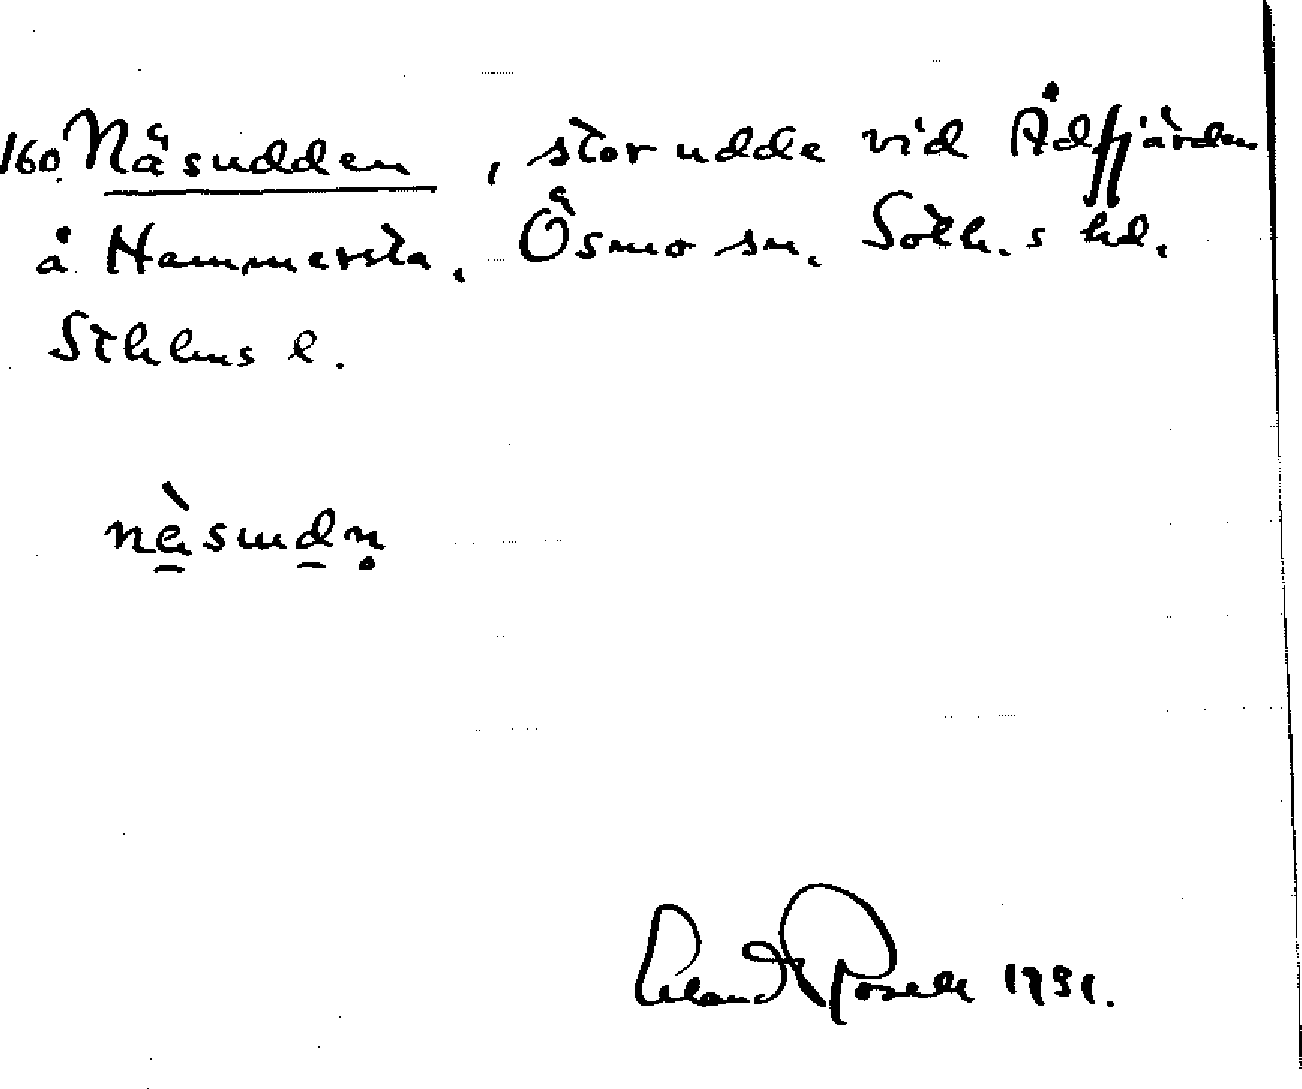 160 Näsudden, stor udde vid Ådfjärden
å Hammersta, Ösmo sn. Soth.s hd.
Sthlms l.
nä̀sudn̥
Erland Rosell 1951.